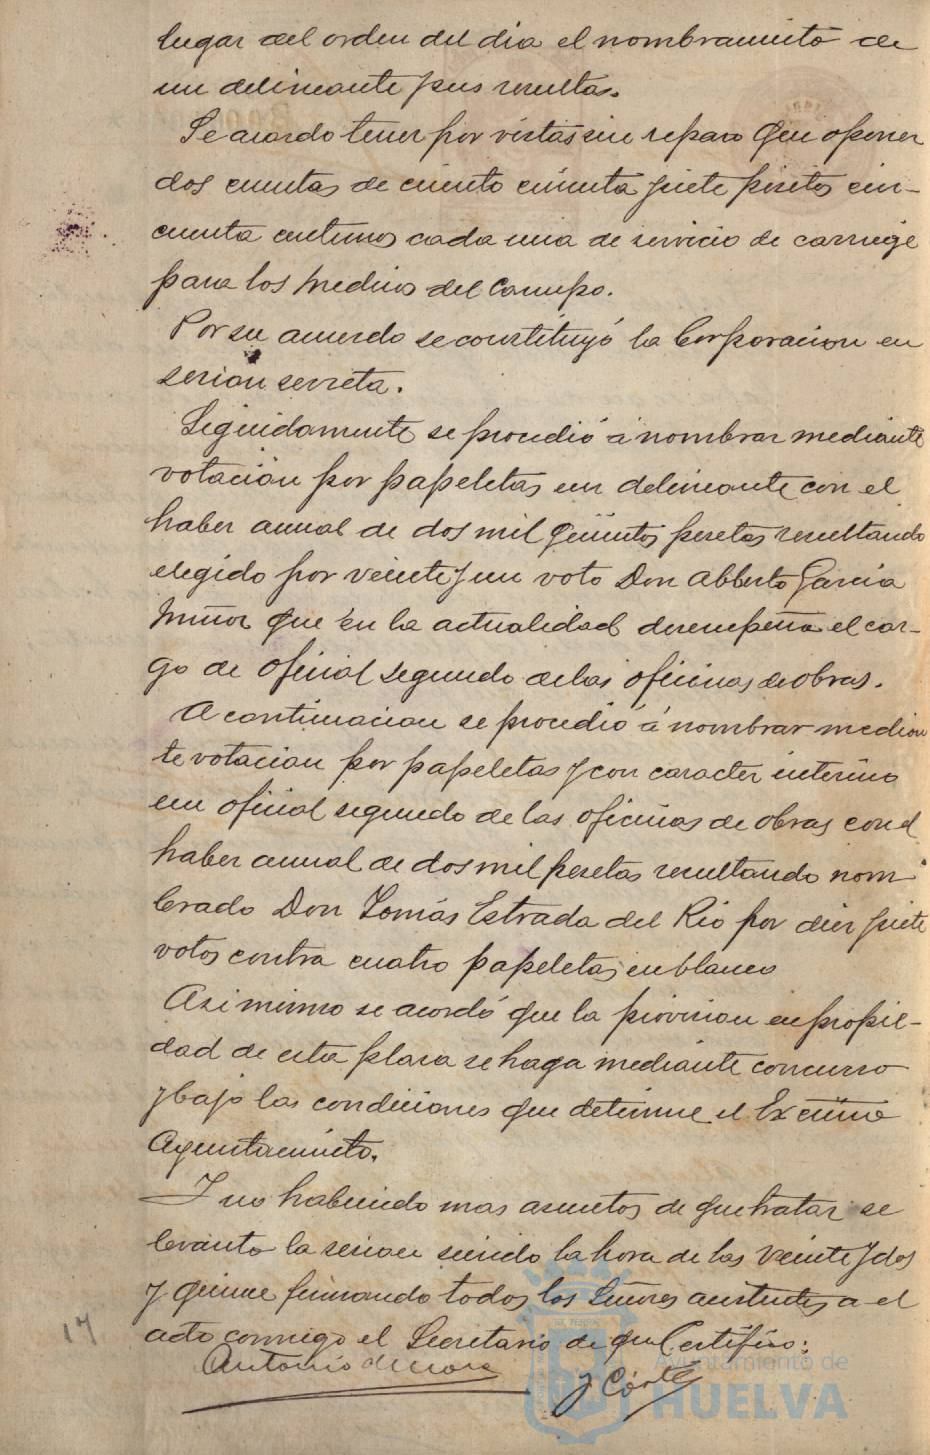 lugar del orden del dia el nombramiento de
un delineante pues resulta.
Se acordo tener por vistas sin reparo que oponer
dos cuentas de ciento cincuenta y siete pesetas cin-
cuenta centimos cada una de servicio de carruaje
para los Medicos del Campo.
Por su acuerdo se constituyó la Corporacion en
sesion secreta.
Seguidamente se procedió á nombrar mediante
votación por papeletas un delineante con el
haber anual de dos mil quinientos pesetas resultando
elegido por veinte y un voto Don Alberto Garcia
Muñoz que en la actualidad desempeña el car-
go de oficial segundo de las oficinas de obras.
A continuacion se procedió á nombrar median
te votacion por papeletas y con caracter interino
un oficial segundo de las oficinas de obras con el
haber anual de dos mil pesetas resultando nom-
brado Don Tomás Estrada del Rio por diez y siete
votos contra cuatro papeletas en blanco
Asi mismo se acordó que la provision en propie-
dad de esta plaza se haga mediante concurso
y bajo las condiciones que determine el Excmo
Ayuntamiento.
Y no habiendo mas asuntos de que tratar se
levanto la sesion siendo la hora de las veinte y dos
y quince firmando todos los Señores asistentes a el
acto conmigo el Secretario de que Certifico:
Antonio de Mora
J Cortés
17
Ayuntamiento de
HUELVA